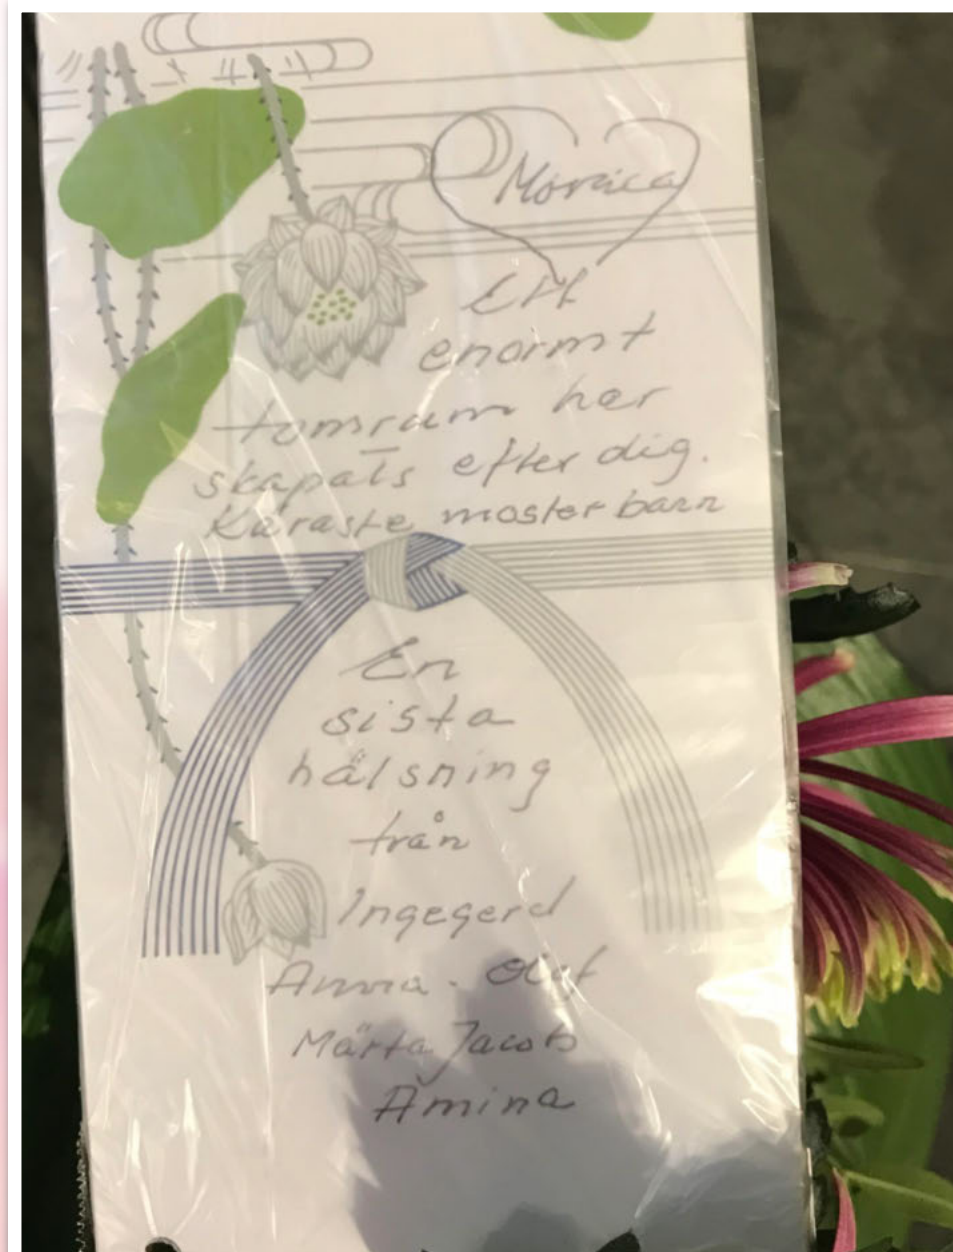 Monica
Ett
enormt
tomrum har
skapats efter dig.
Käraste mosterbarn
En
sista
hälsning
från
Ingegerd
Anna. Olof
Märta Jacob
Amina